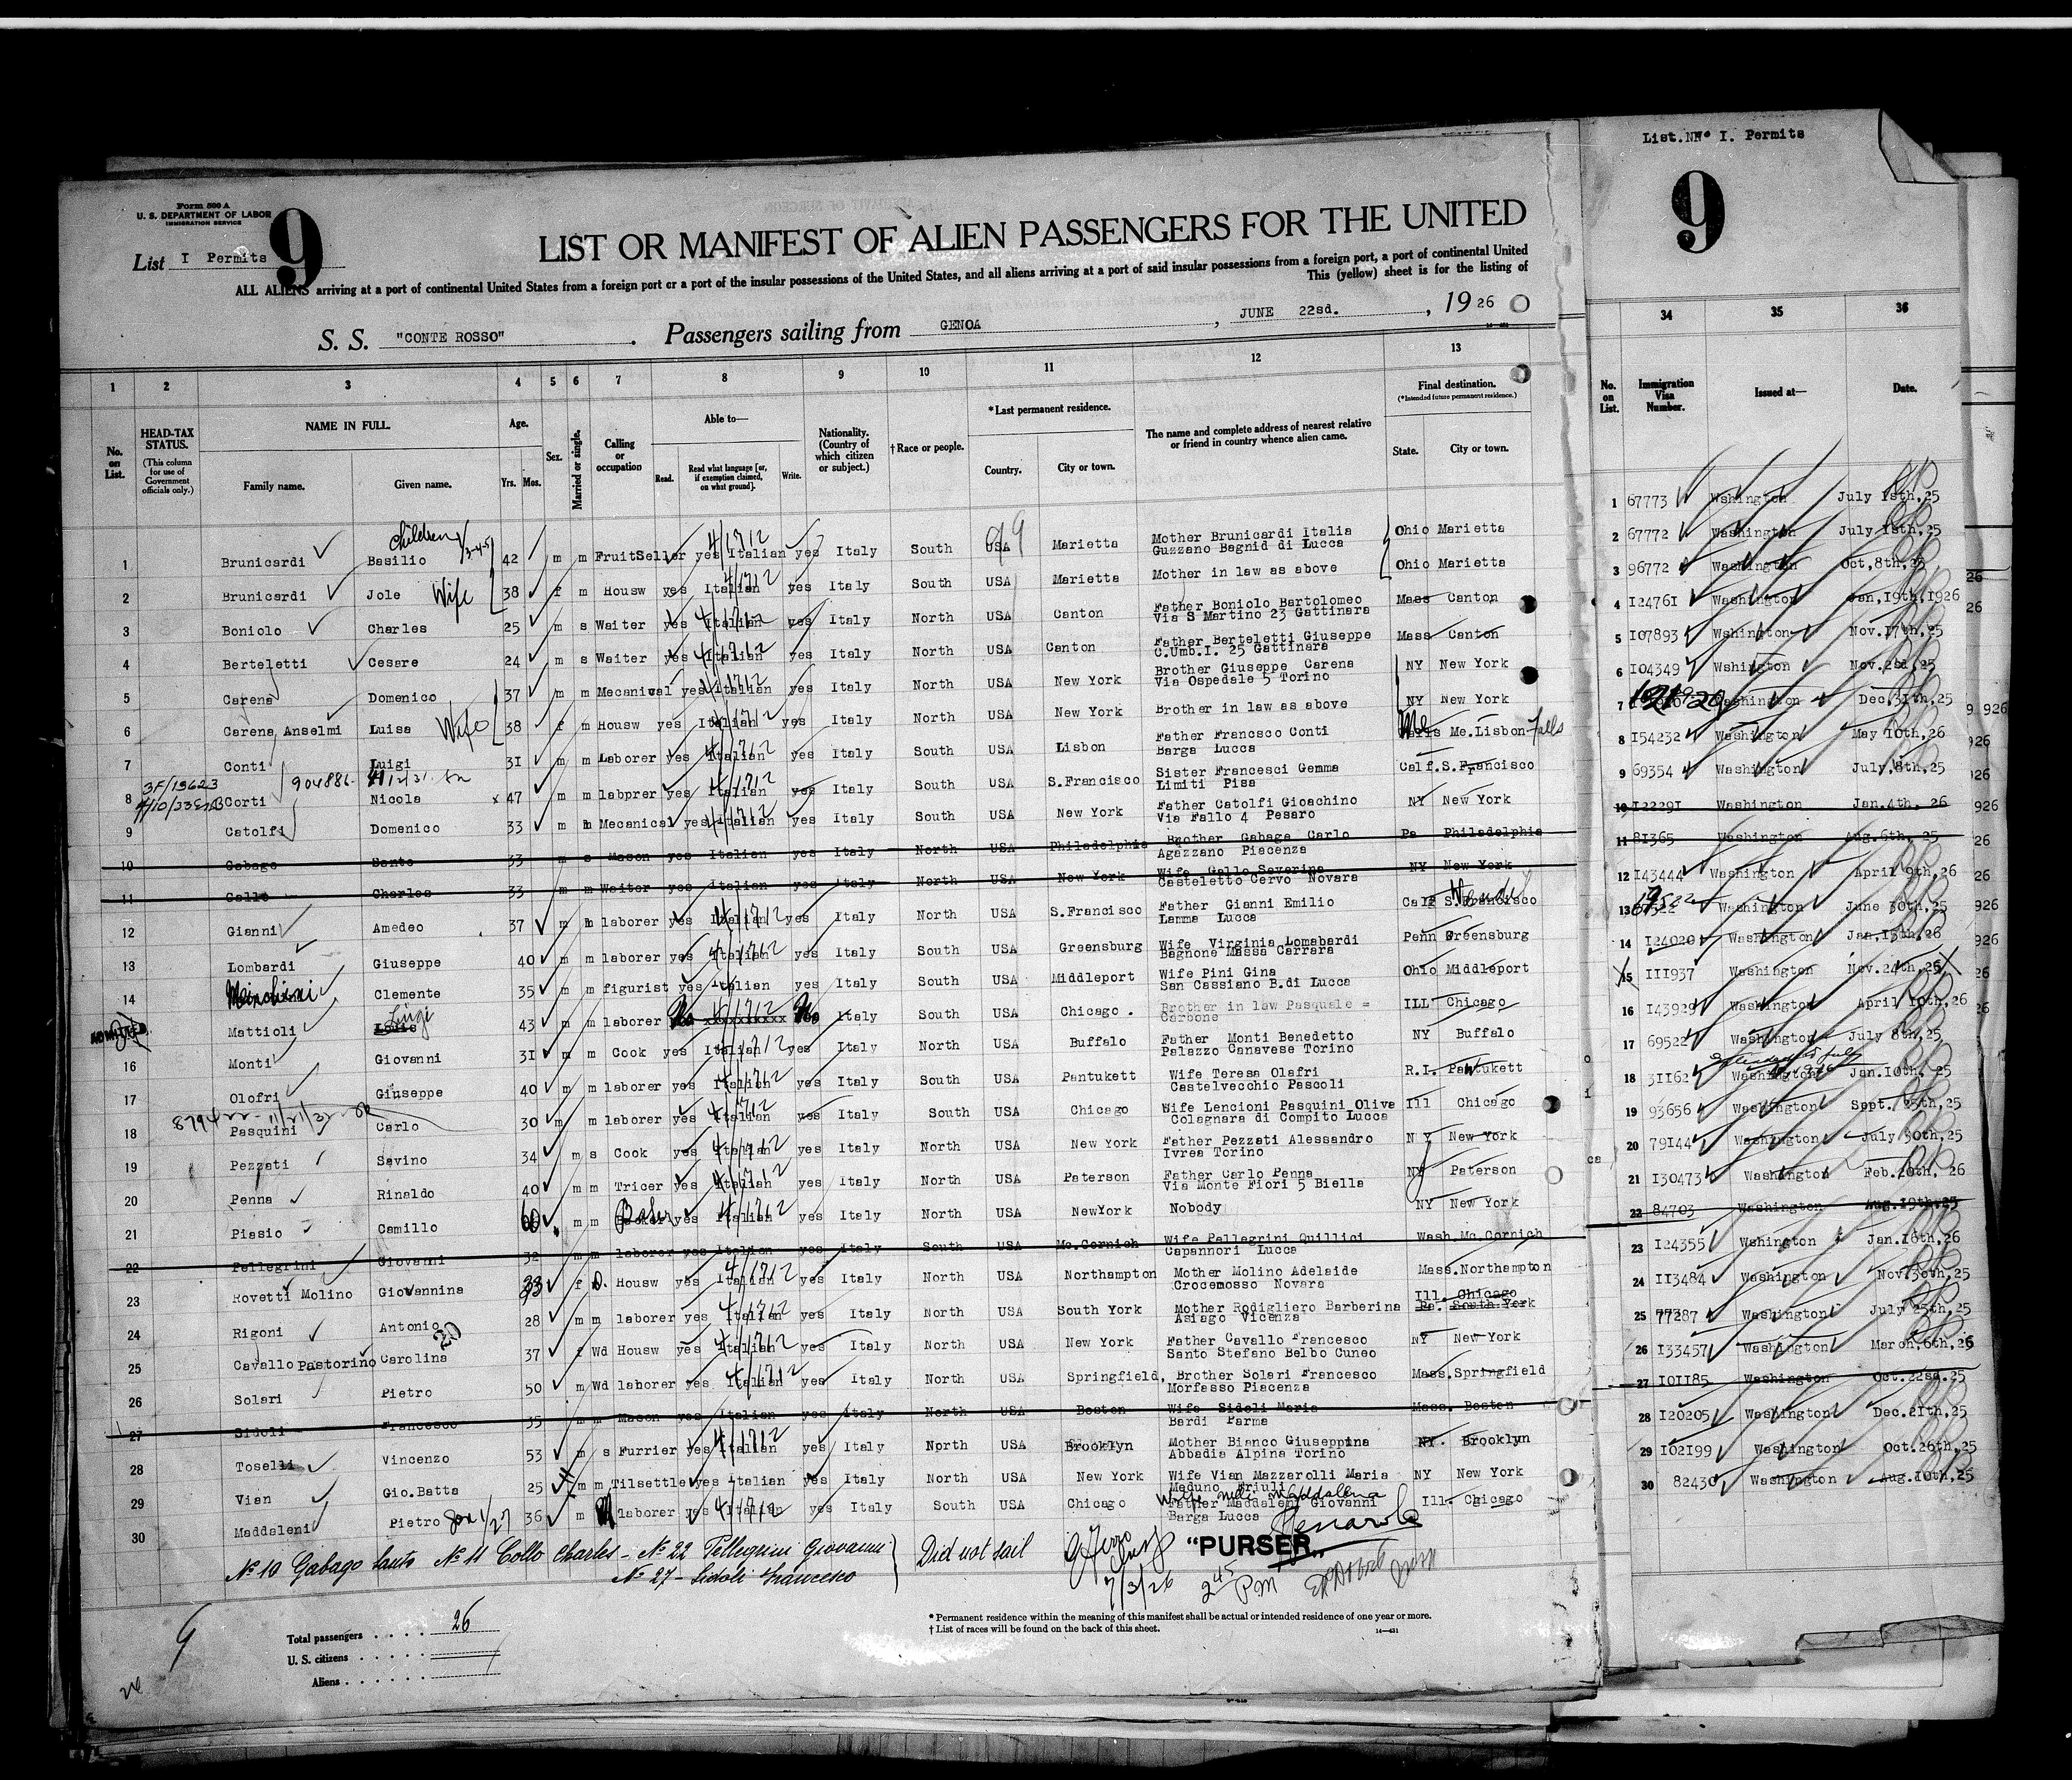 List.NNo I. Permits
Form 500 A
U. S. DEPARTMENT OF LABOR
IMMIGRATION SERVICE
9
9
List I Permits
LIST OR MANIFEST OF ALIEN PASSENGERS FOR THE UNITED
ALL ALIENS arriving at a port of continental United States from a foreign port or a port of the insular possessions of the United States, and all aliens arriving at a port of said insular possessions from a foreign port, a port of continental United
This (yellow) sheet is for the listing of
S. S. "CONTE ROSSO". Passengers sailing from GENOA, JUNE 22sd., 1926
1 2 3 4 5 6 7 8 9 10 11 12 13 34 35 36
No. on List.
HEAD-TAX STATUS.
(This column for use of Government officials only.)
NAME IN FULL.
Family name. Given name.
Age.
Yrs. Mos.
Sex.
Married or single.
Calling or occupation
Able to—
Read. Read what language [or, if exemption claimed, on what ground]. Write.
Nationality. (Country of which citizen or subject.)
†Race or people.
*Last permanent residence.
Country. City or town.
The name and complete address of nearest relative or friend in country whence alien came.
Final destination.
(*Intended future permanent residence.)
State. City or town.
No. on List. Immigration Visa Number. Issued at— Date.
children
1 Brunicardi Basilio 42 m m FruitSeller yes Italian yes Italy South USA Marietta Mother Brunicardi Italia Guzzano Bagnid di Lucca Ohio Marietta
2 Brunicardi Jole Wife 38 f m Housw yes Italian yes Italy South USA Marietta Mother in law as above Ohio Marietta
3 Boniolo Charles 25 m s Waiter yes Italian yes Italy North USA Canton Father Boniolo Bartolomeo Via S Martino 23 Gattinara Mass Canton
4 Berteletti Cesare 24 m s Waiter yes Italian yes Italy North USA Canton Father Berteletti Giuseppe C.Umb.I. 25 Gattinara Mass Canton
5 Carena Domenico 37 m m Mecanical yes Italian yes Italy North USA New York Brother Giuseppe Carena Via Ospedale 5 Torino NY New York
6 Carena Anselmi Luisa Wife 38 f m Housw yes Italian yes Italy North USA New York Brother in law as above NY New York
7 Conti Luigi 31 m m Laborer yes Italian yes Italy South USA Lisbon Father Francsco Conti Barga Lucca Me Me.Lisbon Falls
3F/19623 904886
8 Corti Nicola x 47 m m labprer yes Italian yes Italy South USA S.Francisco Sister Francesci Gemma Limiti Pisa Calf.S.Francisco
9 Catolfi Domenico 33 m m Mecanical yes Italian yes Italy South USA New York Father Catolfi Gioachino Via Fallo 4 Pesaro NY New York
10 Gabago Santo 33 m s Mason yes Italian yes Italy North USA Philadelphia Brother Gabaga Carlo Agazzano Piacenza Pa Philadelphia
11 Gallo Charles 33 m m Waiter yes Italian yes Italy North USA New York Wife Gallo Severina Casteletto Cervo Novara NY New York
12 Gianni Amedeo 37 m m laborer yes Italian yes Italy North USA S.Francisco Father Gianni Emilio Lamma Lucca Calf S.Francisco
13 Lombardi Giuseppe 40 m m laborer yes Italian yes Italy South USA Greensburg Wife Virginia Lomabardi Bagnone Massa Carrara Penn Greensburg
14 Clemente 35 m m figurist yes Italian yes Italy South USA Middleport Wife Pini Gina San Cassiano B.di Lucca Ohio Middleport
ADMITTED
Mattioli Luigi Louis 43 m m laborer No xxxxxxxxxx No Italy South USA Chicago . Brother in law Pasquale = Carbone ILL Chicago
16 Monti Giovanni 31 m m Cook yes Italian yes Italy North USA Buffalo Father Monti Benedetto Palazzo Canavese Torino NY Buffalo
17 Olofri Giuseppe 40 m m laborer yes Italian yes Italy South USA Pantukett Wife Teresa Olafri Castelvecchio Pascoli R.I. Pawtukett
18 Pasquini Carlo 30 m m laborer yes Italian yes Italy South USA Chicago Wife Lencioni Pasquini Oliva Colagnara di Compito Lucca Ill Chicago
19 Pezzati Savino 34 m s Cook yes Italian yes Italy North USA New York Father Pezzati Alessandro Ivrea Torino NY New York
20 Penna Rinaldo 40 m m Tricer yes Italian yes Italy North USA Paterson Father Carlo Penna Via Monte Fiori 5 Biella NY Paterson
21 Piasio Camillo 60 m m Baker yes Italian yes Italy North USA NewYork Nobody NY New York
22 Pellegrini Giovanni 32 m m laborer yes Italian yes Italy South USA Mc.Cornich Wife Pellegrini Quillici Capannori Lucca Wash.Mc.Cornich
23 Rovetti Molino Giovannina 33 f D. Housw yes Italian yes Italy North USA Northampton Mother Molino Adelaide Crocemosso Novara Mass.Northampton
24 Rigoni Antonio 28 m m laborer yes Italian yes Italy North USA South York Mother Rodigliero Barberina Asiago Vicenza Ill. Chicago Pa. South York
25 Cavallo Pastorino Carolina 37 f Wd Housw yes Italian yes Italy North USA New York Father Cavallo Francesco Santo Stefano Belbo Cuneo NY New York
26 Solari Pietro 50 m Wd laborer yes Italian yes Italy North USA Springfield, Brother Solari Francesco Morfasso Piacenza Mass.Springfield
27 Sidoli Francesco 35 m m Mason yes Italian yes Italy North USA Boston Wife Sidoli Maria Bardi Parma Mass. Boston
28 Toselli Vincenzo 53 m s Furrier yes Italian yes Italy North USA Brooklyn Mother Bianco Giuseppina Abbadia Alpina Torino NY. Brooklyn
29 Vian Gio.Batta 25 m m Tilsettle yes Italian yes Italy North USA New York Wife Vian Mazzarolli Maria Meduno Friuli NY New York
30 Maddaleni Pietro 36 m M laborer yes Italian yes Italy South USA Chicago Father Maddaleni Giovanni Barga Lucca Ill. Chicago
No 10 Gabago Santo No 11 Collo Charles – No 22 Pellegrini Giovanni
No 27 – Sidoli Francesco
Did not sail
7/3/26 2 45 PM
"PURSER"
1 67773 Wshington July 18th,25
2 67772 Washington July 18th,25
3 96772 Washington Oct,8th,25
4 124761 Washington Jan,19th,1926
5 107893 Wshington Nov.17th,25
6 104349 Wshington Nov.2sd,25
7 Washington Dec.31th,25
8 154232 Washington May 10th,26
9 69354 Washington July,8th,25
10 122291 Washington Jan.4th, 26
11 81365 Washington Aug.6th, 25
12 143444 Washington April 9th,26
13 Washington June 30th,25
14 124020 Washington Jan,15th,26
15 111937 Washington Nov.24th,25
16 145929 Washington April 10th,26
17 69522 Washington July 8th,25
18 31162 Washington Jan.10th, 25
19 93656 Washington Sept. 25th,25
20 79144 Washington July 30th,25
21 130473 Washington Feb.20th, 26
22 84703 Washington Aug.19th,25
23 124355 Wshington Jan.16th,26
24 113484 Washington Nov.30th,25
25 77287 Washington July 25th,25
26 133457 Washington March,6th,26
27 101185 Washington Oct.22sd.25
28 120205 Washington Dec.21th,25
29 102199 Washington Oct.26th,25
30 82430 Washington Aug.10th,25
* Permanent residence within the meaning of this manifest shall be actual or intended residence of one year or more.
† List of races will be found on the back of this sheet.
Total passengers . . . . 26
U. S. citizens . . . .
Aliens . . . . .